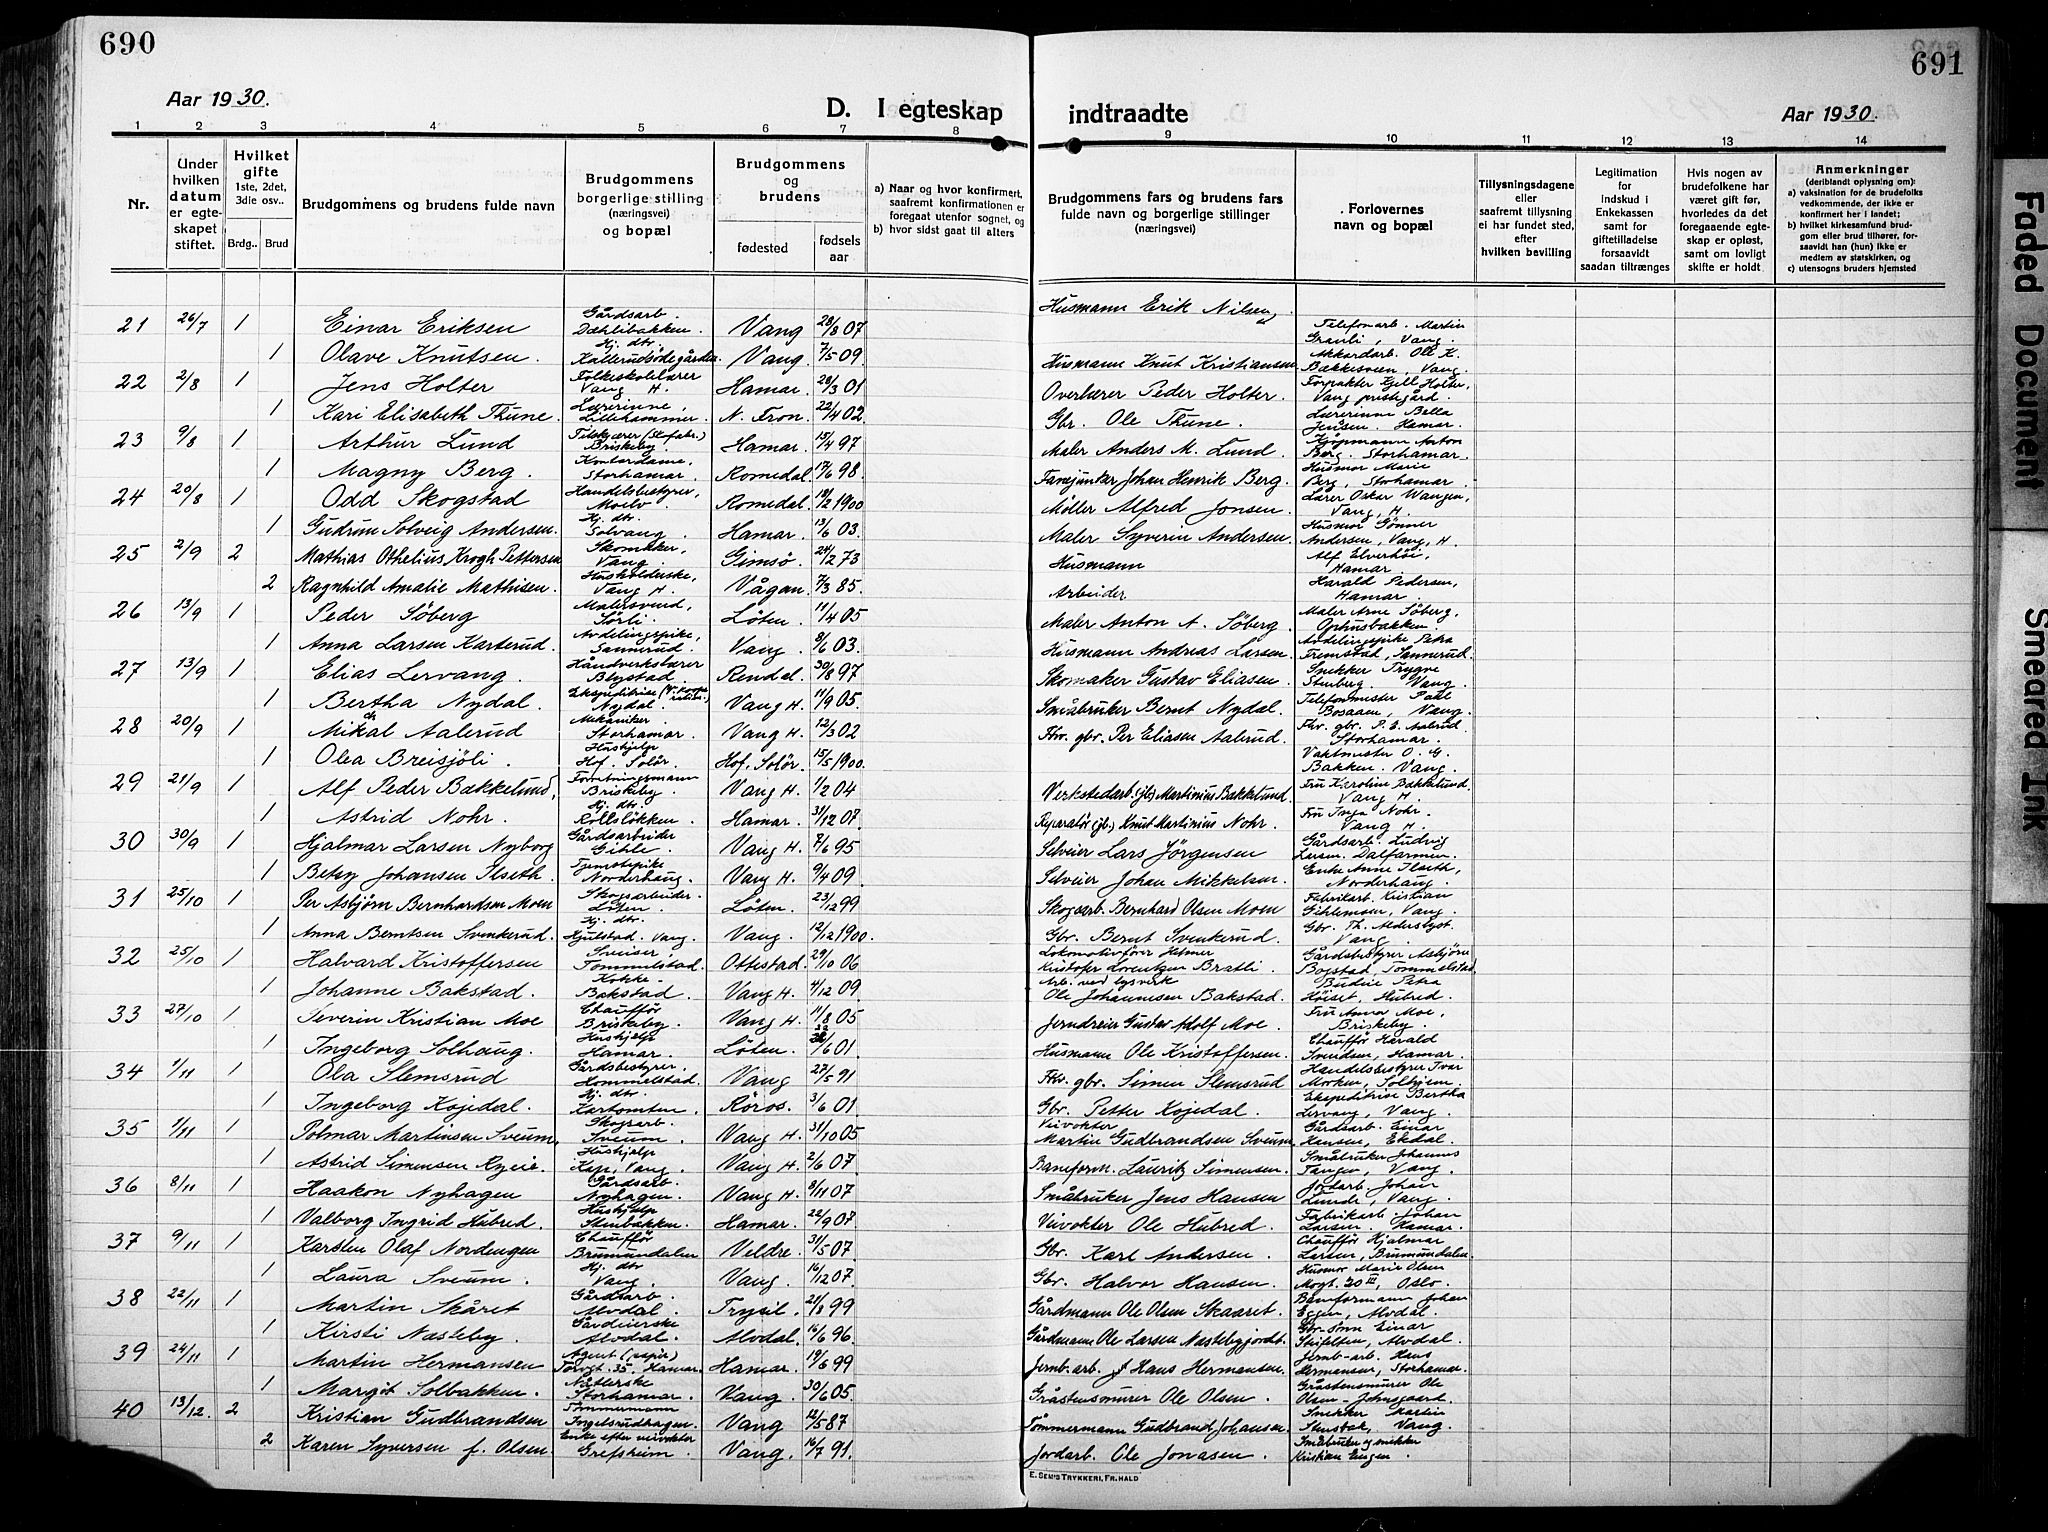 690
691
Aar 1930.
D. I egteskap
indtraadte
Aar 1930.
1 2 3 4 5 6 7 8 9 10 11 12 13 14
Nr.
Under hvilken datum er egteskapet stiftet.
Hvilket gifte 1ste, 2det, 3die osv..
Brdg.. Brud
Brudgommens og brudens fulde navn
Brudgommens borgerlige stilling (næringsvei) og bopæl
Brudgommens og brudens
fødested
fødsels aar
a) Naar og hvor konfirmert, saafremt konfirmationen er foregaat utenfor sognet, og
b) hvor sidst gaat til alters
Brudgommens fars og brudens fars fulde navn og borgerlige stillinger (næringsvei)
Forlovernes navn og bopæl
Tillysningsdagene eller saafremt tillysning ei har fundet sted, efter hvilken bevilling
Legitimation for Indskud i Enkekassen samt for giftetilladelse forsaavidt saadan tiltrænges
Hvis nogen av brudefolkene har været gift før, hvorledes da det foregaaende egteskap er opløst, samt om lovligt skifte er holdt
Anmerkninger (deriblandt oplysning om):
a) vaksination for de brudefolks vedkommende, der ikke er konfirmert her i landet;
b) hvilket kirkesamfund brudgom eller brud tilhører, forsaavidt han (hun) ikke er medlem av statskirken, og
c) utensogns bruders hjemsted
21 26/7 1 Einar Eriksen Gårdsarb. Dæhlibakken. Vang 28/8 07 Husmann Erik Nilsen Telefonarb. Martin Granli, Vang.
1 Olave Knutsen. Hj. dtr. Kallerudsødegården Vang 7/5 09 Husmann Knut Kristiansen Akkordarb. Ole K. Bakkesveen, Vang.
22 2/8 1 Jens Holter Folkeskolelærer Vang H. Hamar. 28/3 01 Overlærer Peder Holter. Forpakter Kjell Holter, Vang prestegård.
1 Kari Elisabeth Thune. Lærerinne, Lillehammer. N. Fron. 22/4 02. Gbr. Ole Thune. Lærerinne Bella Jensen. Hamar.
23 9/8 1 Arthur Lund Tilskjærer (Skofabr.) Briskeby. Hamar. 15/4 97 Maler Anders M. Lund. Kjøpmann Anton Berg. Storhamar.
1 Magny Berg. Kontordame, Storhamar. Romedal. 17/6 98. Fanejunker Johan Henrik Berg. Husmor Marie Berg, Storhamar.
24 20/8 1 Odd Skogstad Handelsbestyrer, Moelv Romedal. 18/2 1900 Møller Alfred Jonsen. Lærer Oskar Wangen, Vang, H.
1 Gudrun Solveig Andersen. Hj. dtr. Solvang. Hamar. 13/6 03. Maler Syverin Andersen. Husmor Gønner Andersen, Vang, H.
25 2/9 2 Mathias Othelius Krogh Pettersen Skomaker, Vang. Gimsø. 24/2 73 Husmann Alf Elverhøi, Hamar.
2 Ragnhild Amalie Mathisen. Husholderske, Vang H. Vågan. 7/3 85. Arbeider Harald Pedersen, Hamar.
26 13/9 1 Peder Søberg Malersvend, Sørli. Løten. 11/4 05 Maler Anton A. Søberg. Maler Arne Søberg, Ophusbakken.
1 Anna Larsen Karterud. Avdelingspike, Sannerud. Vang. 8/6 03. Husmann Andreas Larsen Avdelingspike Petra Fremstad, Sannerud.
27 13/9 1 Elias Lervang. Håndverkslærer Blystad. Rendal. 30/8 97 Skomaker Gustav Eliasen. Snekker Trygve Stenberg. Vang.
1 Bertha Nydal. Nydal. Vang H. 11/9 05. Småbruker Bernt Nydal. Telefonmester Paal Bosaaen, Vang.
28 20/9 1 Mikal Aalerud Mekaniker. Storhamar. Vang H. 12/3 02 Fhv. gbr. Per Eliasen Aalerud. Fhv. gbr. P. E. Aalerud Storhamar.
1 Olea Breisjöli. Hushjelp Hof. Solør. Hof. Solør. 15/5 1900. Vaktmester O. G. Bakken. Vang.
29 21/9 1 Alf Peder Bækkelund, Forretningsmann Briskeby. Vang H. 1/2 04 Verkstedarb. Martinius Bækkelund. Fru Karoline Bækkelund. Vang H.
1 Astrid Nohr. Hj. dtr. Rollsløkken. Hamar. 31/12 07. Reparatør Knut Martinius Nohr. Fru Inga Nohr. Vang H.
30 30/9 1 Hjalmar Larsen Nyborg Gårdsarbeider Gihle. Vang H. 7/6 95 Selveier Lars Jørgensen Gårdsarb. Ludvig Larsen. Dalfarmen.
1 Betsy Johansen Ilseth. Tjenestepike Norderhaug. Vang H. 9/4 09. Selveier Johan Mikkelsen. Enke Anne Ilseth, Norderhaug.
31 25/10 1 Per Asbjørn Bernhardsen Moen Skogsarbeider. Løten. Løten. 23/12 99 Skogsarb. Bernhard Olsen Moen Fabrikarb. Kristian Gihlemoen, Vang.
1 Anna Berntsen Svenkerud. Hj. dtr. Hjulstad. Vang. Vang. 12/12 1900. Gbr. Bernt Svenkerud. Gbr. Th. Alderslyst. Vang.
32 25/10 1 Halvard Kristoffersen Sveiser. Tommelstad. Ottestad. 29/10 06 Lokomotivfører Helmer Kristofer Lorentzen Bratli. Gårdsbestyrer Asbjørn Bogstad, Tommelstad.
1 Johanne Bakstad. Kokke. Bakstad. Vang H. 4/12 09. Arb. ved lysverk Ole Johannesen Bakstad. Budeie Petra Høiset, Hubred.
33 27/10 1 Severin Kristian Moe Chauffør Briskeby. Vang H. 11/8 05 Jerndreier Gustav Adolf Moe. Fru Anna Moe, Briskeby.
1 Ingeborg Solhaug. Hushjelp Hamar. Løten. /6 01 Husmann Ole Kristoffersen. Chauffør Harald Svendsen, Hamar.
34 1/11 1 Ola Slemsrud Gårdsbestyrer. Hommelstad. Vang 27/5 91 Fhv. gbr. Simen Slemsrud Handelsbestyrer Ivar Morken, Solhjem.
1 Ingeborg Kojedal. Hj. dtr. Kartomten. Røros. 3/6 01 Gbr. Petter Kojedal. Ekspeditrise Bertha Lervang, Vang.
35 1/11 1 Polmar Martinsen Sveum, Skogsarb. Sveum. Vang H. 31/10 05 Veivokter Martin Gudbrandsen Sveum. Gårdsarb. Einar Hansen, Ekdal.
1 Astrid Simensen Ryeie. Hushjelp Kap, Vang. Vang H. 2/6 07 Baneform. Lauritz Simensen. Småbruker Johannes Tangen, Vang.
36 8/11 1 Haakon Nyhagen Gårdsarb. Nyhagen. Vang H. 8/11 07 Småbruker Jens Hansen Jordarb. Johan Lunde, Vang.
1 Valborg Ingrid Hubred. Hushjelp Stenbakken. Hamar. 22/9 07 Veivokter Ole Hubred. Fabrikarb. Johan Larsen. Hamar.
37 9/11 1 Karsten Olaf Nordengen Chauffør Brumundalen Veldre. 31/5 07 Gbr. Karl Andersen. Chauffør Hjalmar Larsen, Brumundalen.
1 Laura Sveum. Hj. dtr Vang. Vang. 16/12 07. Gbr. Halvor Hansen. Husmor Marie Olsen Mogt. 20 III, Oslo.
38 22/11 1 Martin Skåret Gårdsarb. Alvdal. Trysil. 21/8 99 Gårdmann Ole Olsen Skaaret. Baneformann Johan Eggen, Alvdal.
1 Kirsti Næsteby. Gårdeierske Alvdal. Alvdal. 16/6 96. Gårdmann Ole Larsen Næstebyjordt. Gbr.-sønn Einar Alvdal.
39 24/11 1 Martin Hermansen Agent (papir) Torvgt. 35, Hamar. Hamar. 19/6 99 Jernb.arb. Hans Hermansen. Jernb-arb. Hans Hermansen, Storhamar.
1 Margit Solbakken. Nåtlerske Storhamar. Vang. 30/6 05. Gråstensmurer Ole Olsen. Gråstensmurer Ole Olsen
40 13/12. 2 Kristian Gudbrandsen Tømmermann Ingelsrudhagen. Vang 12/5 87 Tømmermann Gudbrand Johansen. Snekker Martin Stenstok, Vang.
2 Karen Syversen f. Olsen Enke efter veivokter Grefsheim. Vang. 16/7 91. Jordarb. Ole Jonasen. Småbruker og snekker Kristian Engen.
E. SEM'S TRYKKERI, FR.HALD
Faded Document
Smeared Ink